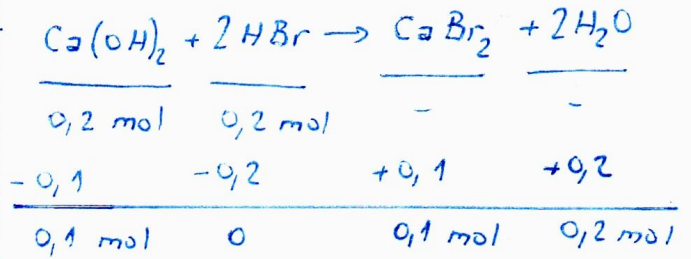 Ca(OH)₂ + 2HBr → CaBr₂ + 2H₂O
0,2 mol 0,2 mol - -
-0,1 -0,2 +0,1 +0,2
0,1 mol 0 0,1 mol 0,2 mol